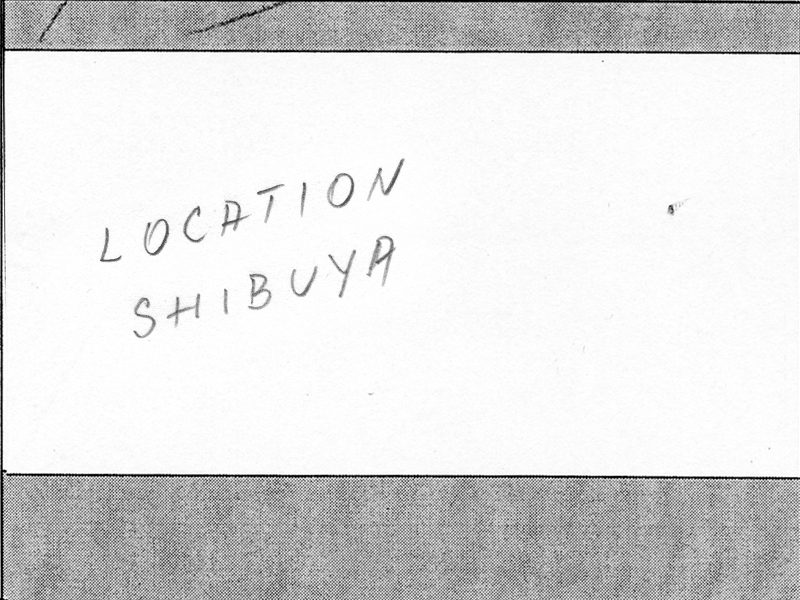 LOCATION
SHIBUYA